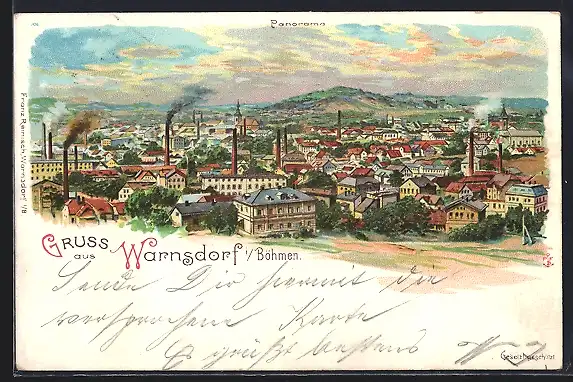 Panorama
Franz Remisch, Warnsdorf i/B.
GRUSS
aus
WARNSDORF i/ BÖHMEN.
Sende Dir hiermit die
versprochene Karte
Es grüßt bestens
Gesetzl. geschützt